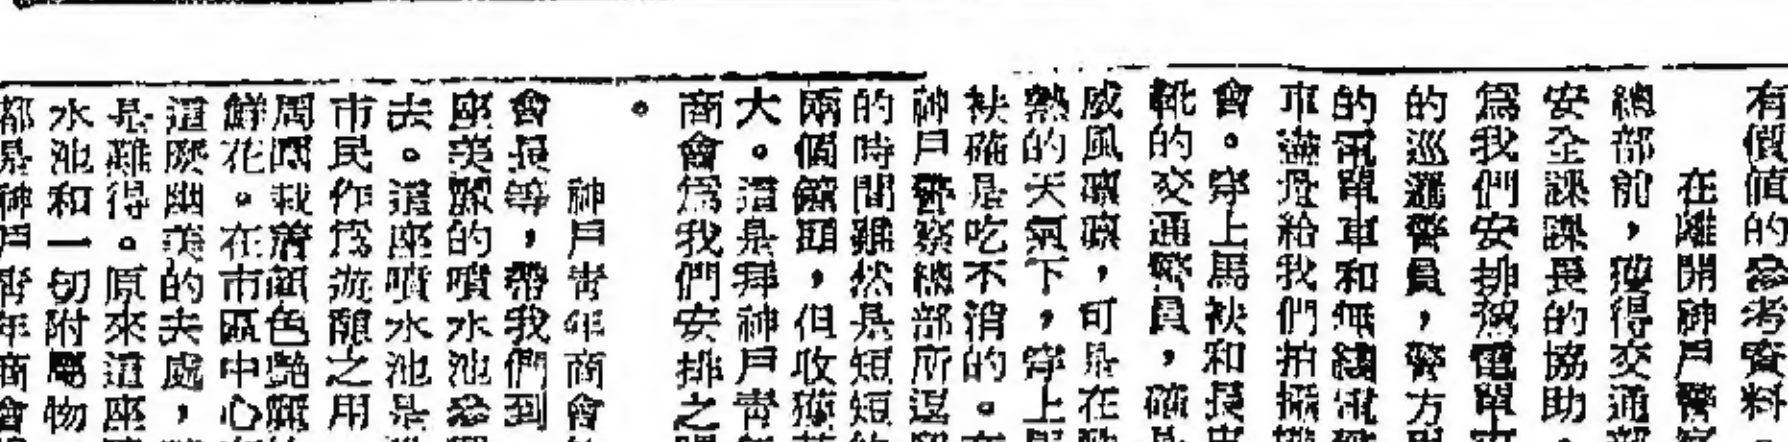 有價值的參考資料。
在離開神戶警
總部前，獲得交通部
安全課課長的協助，
爲我們安排了電單車
的巡邏警員，警方
的電單車和無綫電
車燈給我們拍攝
會。穿上馬袂和長
靴的交通警員，確
威風凜凜，可是在
熱的天氣下，穿上
袂確是吃不消的。
神戶警察總部所逗
的時間雖然是短短的
兩個鐘頭，但收獲
大。這是拜神戶靑
商會爲我們安排之
。
神戶靑年商會
會長等，帶我們到
座美麗的噴水池參
去。這座噴水池是
市民作爲遊憩之用
周圍栽着顏色艷麗
鮮花。在市區中心
這麼幽美的去處，
是難得。原來這座
水池和一切附屬物
都是神戶靑年商會